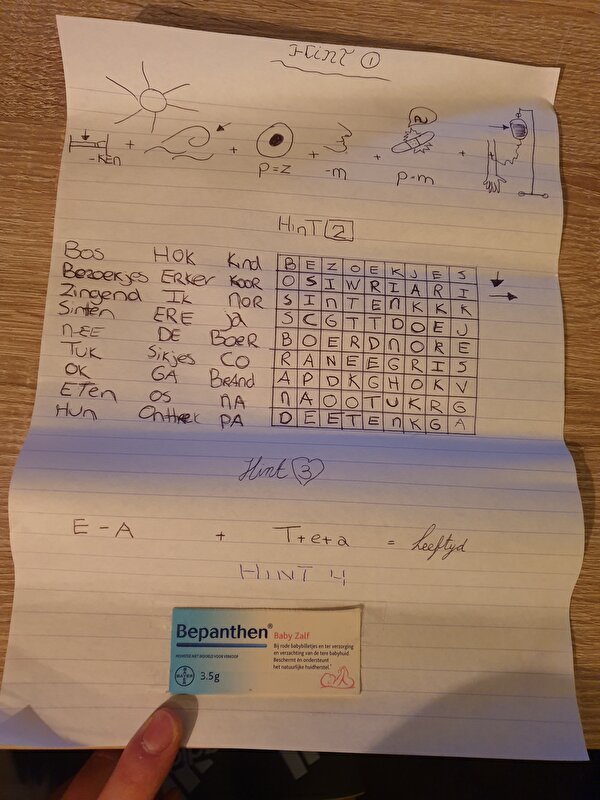 Hint 1
-KEN + + p=z + -m + a p-m +
HinT 2
BOS HOK Kind
Bezoekjes ERKER KOOR
Zingend Ik nOR
Sinten ERE ja
n-EE DE BOER
TUK Sikjes CO
OK GA BRAnd
ETen OS nA
Hun PA
B E Z O E K J E S
O S I W R I A R I
S I N T E N K K K
S C G T T D O E J
B O E R D N O R E
R A N E E G R I S
A P D K G H O K V
N A O O T U K R G
D E E T E N K G A
Hint 3
E - A + T+e+a = leeftyd
HINT 4
Bepanthen® Baby Zalf
Bij rode babybilletjes en ter verzorging
en verzachting van de tere babyhuid.
Beschermt én ondersteunt
het natuurlijke huidherstel.
BAYER 3.5g